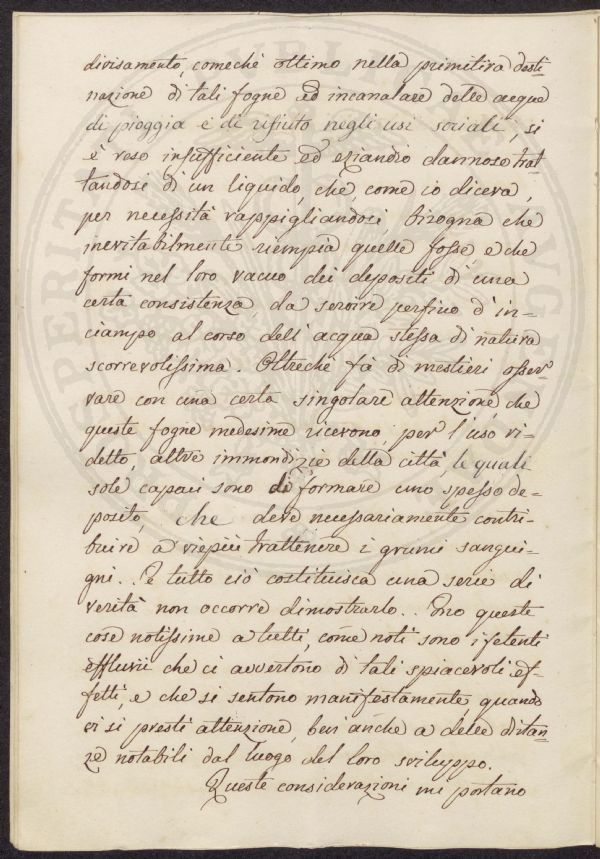 divisamento, comechè ottimo nella primitiva desti-
nazione di tali fogne ed incanalare delle acque
di pioggia e di rifiuto negli usi sociali, si
è reso insufficiente ed eziandio dannoso trat-
tandosi di un liquido, che, come io diceva,
per necessità rappigliandosi, bisogna che
inevitabilmente riempia quelle fosse, e che
formi nel loro vacuo dei depositi di una
certa consistenza da servire perfino d'in-
ciampo al corso dell'acqua stessa di natura
scorrevolissima. Oltrechè fà di mestieri osser-
vare con una certa singolare attenzione, che
queste fogne medesime ricevono, per l'uso ri-
detto, altre immondizie della città, le quali
sole capaci sono di formare uno spesso de-
posito, che deve necessariamente contri-
buire a viepiù trattenere i grumi sangui-
gni. . E tutto ciò costituisca una serie di
verità non occorre dimostrarlo. . Sno queste
cose notissime a tutti, come noti sono i fetenti
effluvii che ci avvertono di tali spiacevoli ef-
fetti, e che si sentono manifestamente quando
vi si presti attenzione, ben'anche a delle ditan-
ze notabili dal luogo del loro sviluppo.
Queste considerazioni mi portano